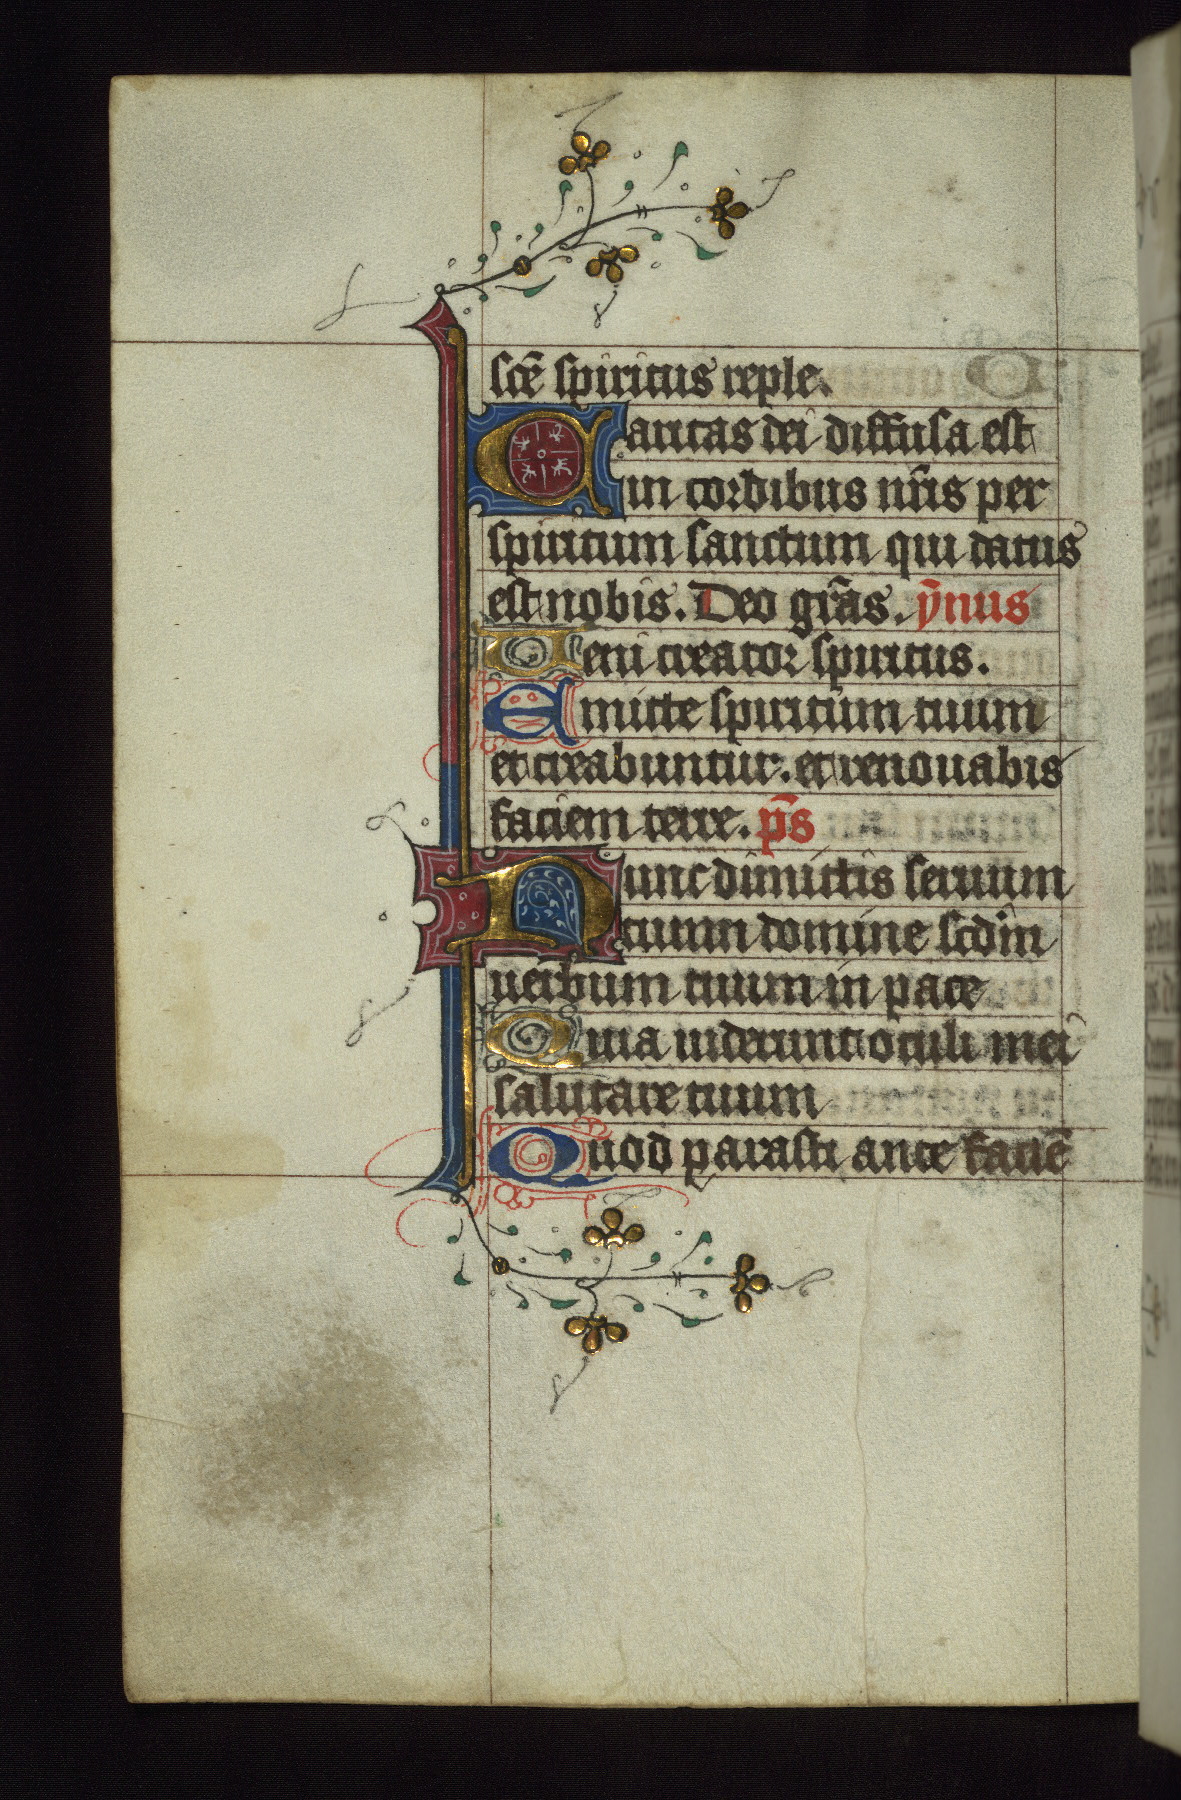 scē spiritus reple.
Caritas dei diffusa est
in cordibus nr̄is per
spiritum sanctum qui datus
est nobis. Deo gr̄as. ȳnus
Ueni creator spiritus.
Emitte spiritum tuum
et creabuntur. et renouabis
faciem terre. p̄s
Nunc dimittis seruum
tuum domine scd̄m
uerbum tuum in pace
Quia uiderunt oculi mei
salutare tuum
Quod parasti ante faciē